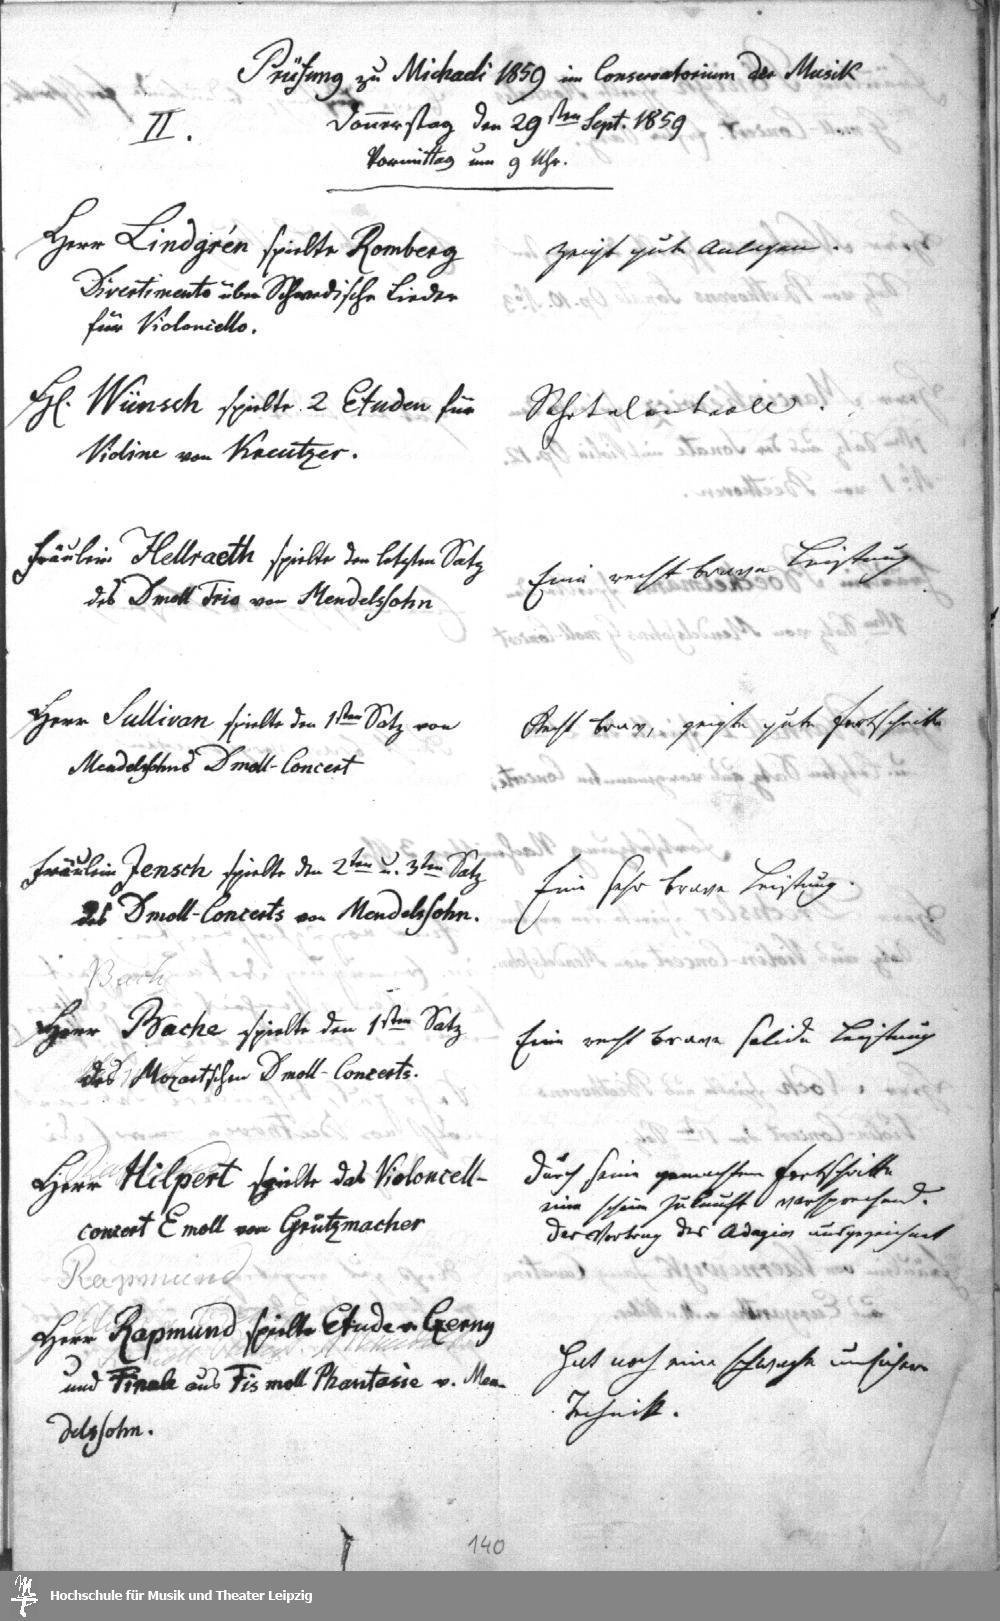 Prüfung zu Michaeli 1859 im Conservatorium der Musik
II.
Donnerstag den 29sten Sept. 1859
Vormittag um 9 Uhr.
Herr Lindgrén spielte Romberg
Divertimento über Schwedische Lieder
für Violoncello.
zeigt gute Anlagen.
H. Wünsch spielte 2 Etuden für
Violine von Kreutzer.
Sehr talentvoll.
Fräulein Hellraeth spielte den letzten Satz
des Dmoll Trio von Mendelssohn
Eine recht brave Leistung
Herr Sullivan spielte den 1sten Satz von
Mendelssohns Dmoll-Concert
Recht brav, zeigte gute Fortschritte
Fräulein Jensch spielte den 2ten u. 3ten Satz
des Dmoll-Concerts von Mendelssohn.
Eine sehr brave Leistung.
Bach
Herr Bache spielte den 1sten Satz
des Mozartschen Dmoll-Concerts.
Eine recht brave solide Leistung
Herr Hilpert spielte das Violoncell-
concert Emoll von Grützmacher
Durch seine gemachten Fortschritte
eine schöne Zukunft versprechend.
Der Vortrag des Adagios ausgezeichnet
Rapmund
Herr Rapmund spielte Etude v. Czerny
und Finale aus Fismoll Phantasie v. Men-
delssohn.
Hat noch eine schwache unsichere
Technik.
140
Hochschule für Musik und Theater Leipzig